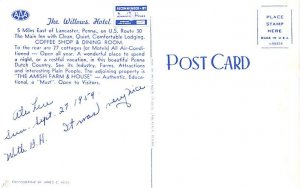 AAA
RECOMMENDED BY
The Willows Hotel
5 Miles East of Lancaster, Penna., on U.S. Route 30
The Nice Inn with Clean, Quiet, Comfortable Lodging.
COFFEE SHOP & DINING ROOM
To the rear are 27 cottages (or Motels) All Air-Conditioned — Open all year. A wonderful place to spend
a night, or a restful vacation, in this beautiful Penna
Dutch Country. See its Industry, Farms, Attractions
and interesting Plain People. The adjoining property is
"THE AMISH FARM & HOUSE" — Authentic, Educational, a "Must". Open to Visitors.
PLACE
STAMP
HERE
MADE IN U.S.A.
POST CARD
Ate here
Sun. Sept. 27, 1959
With B.H. It was very nice
PHOTOGRAPHY BY JAMES E. HESS